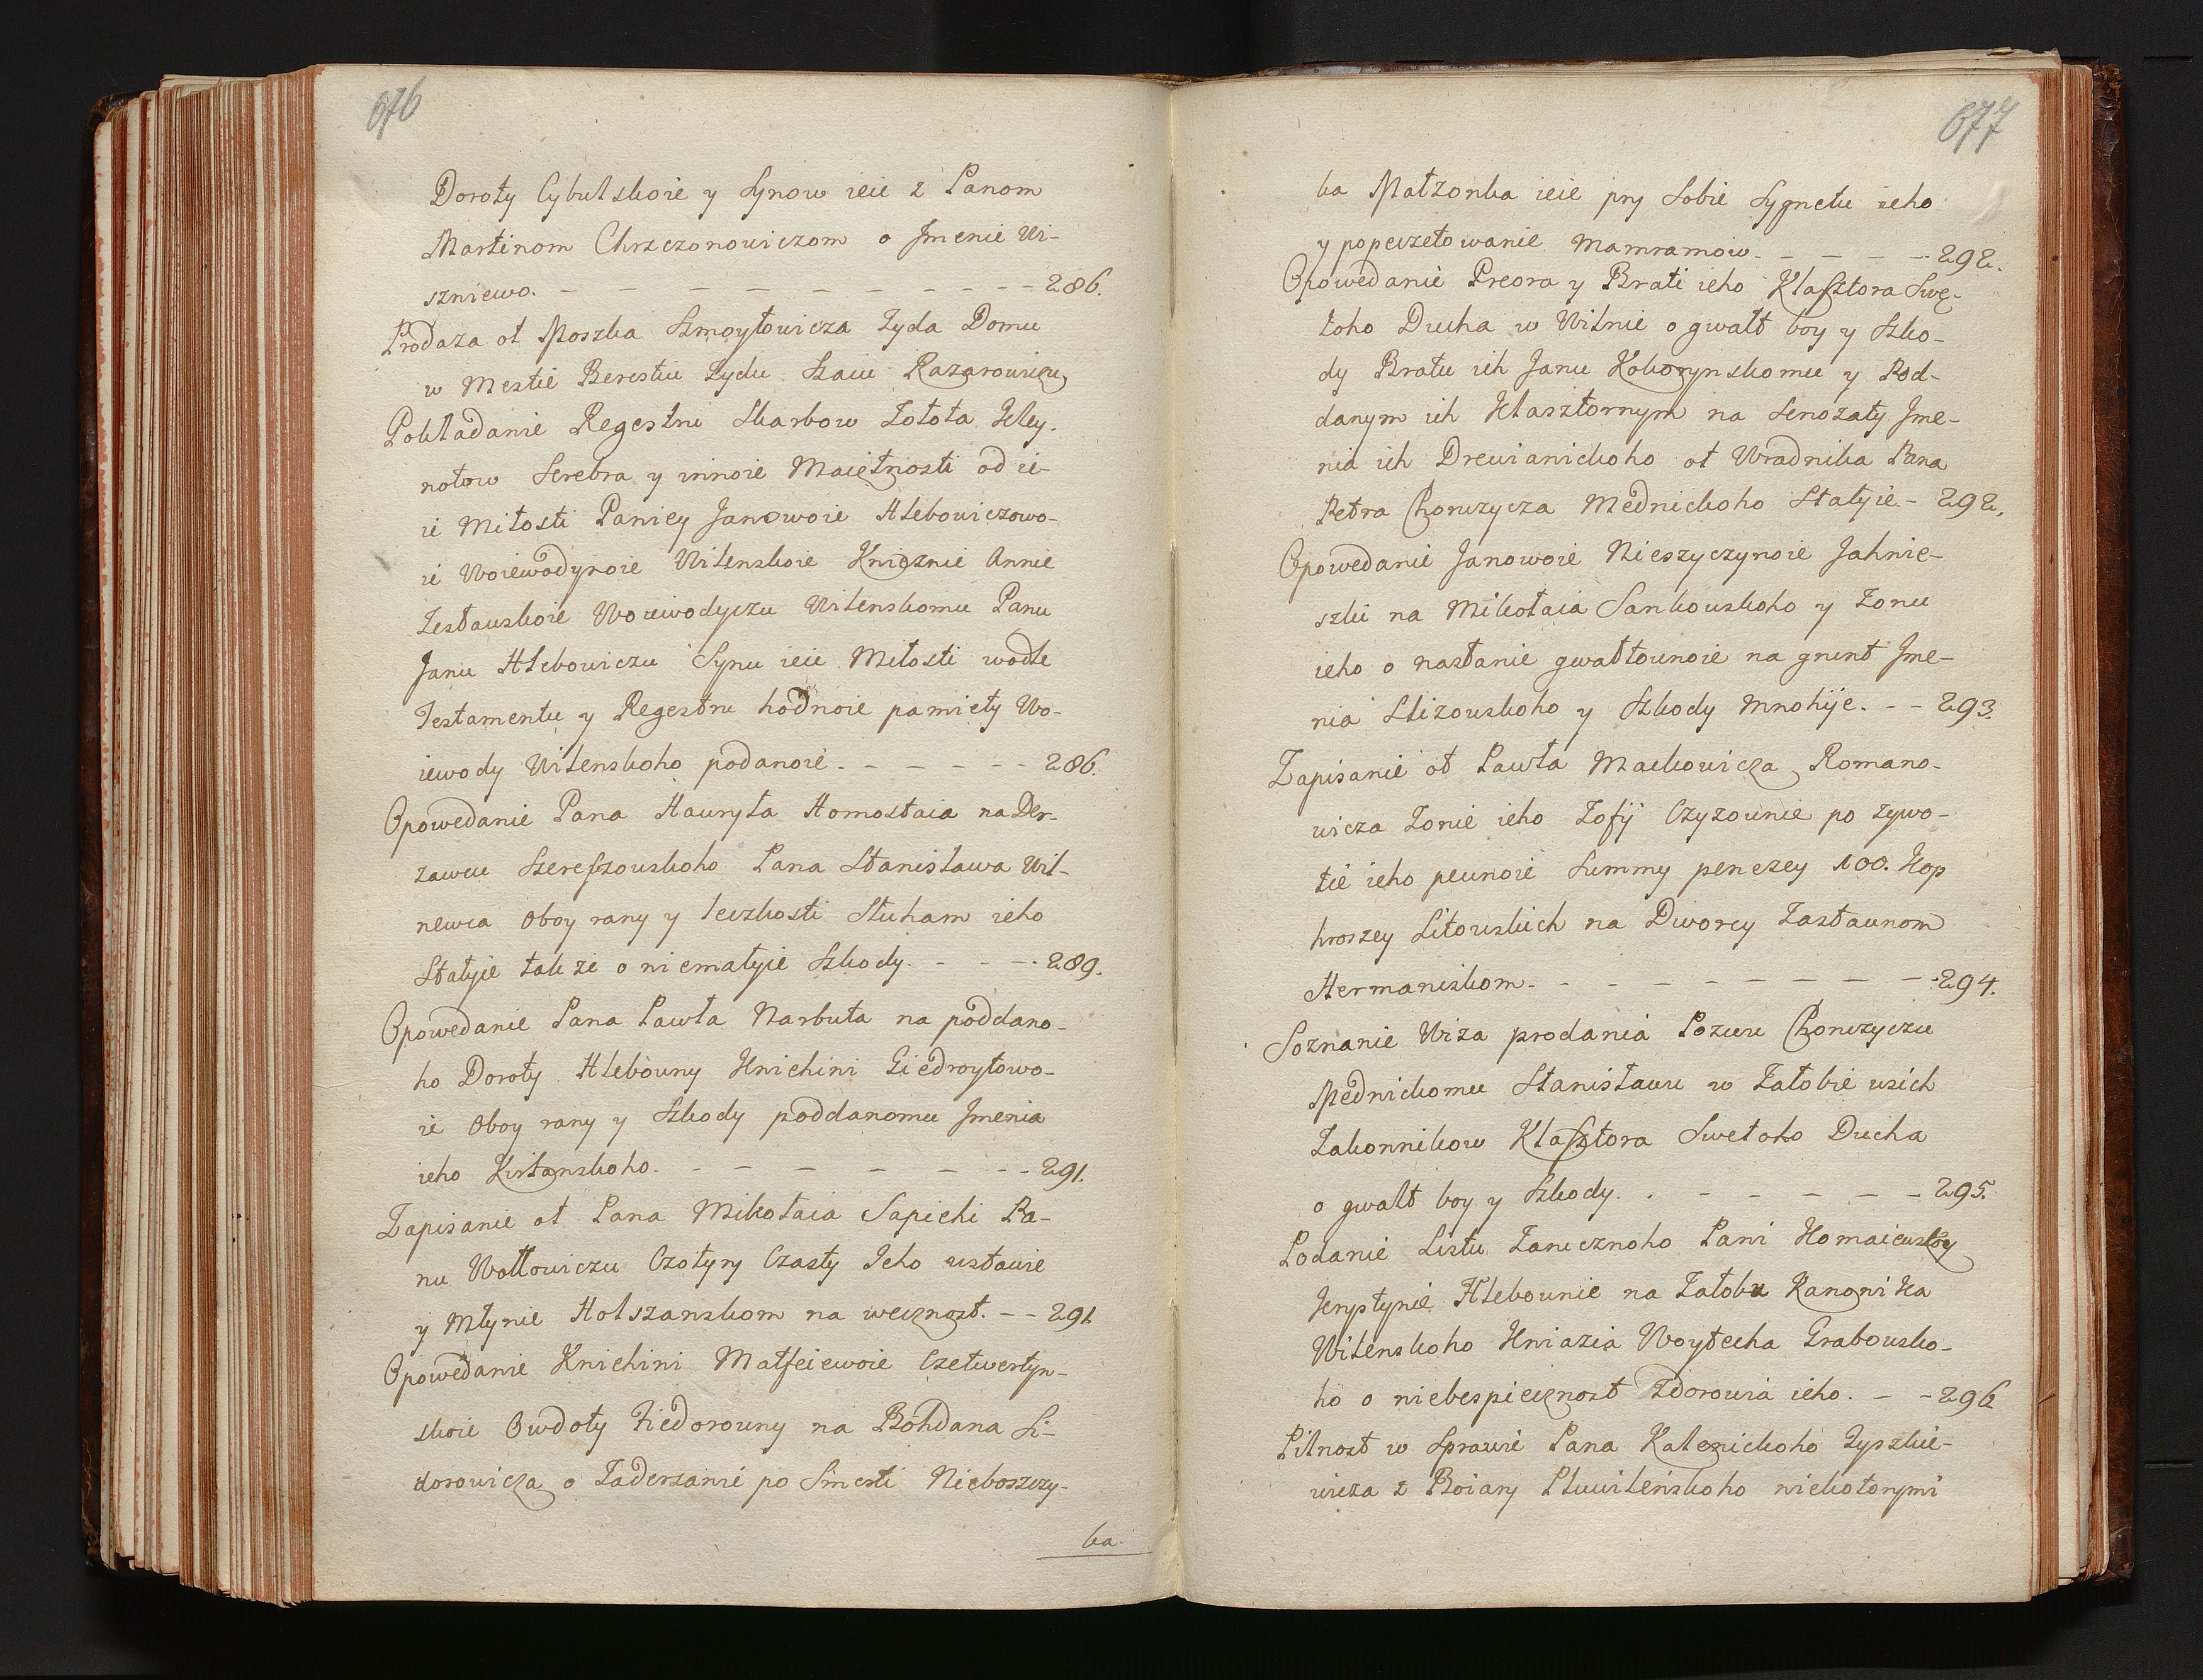 676
Doroty Cybulskoie y Synow ieie z Panom
Martinom Chrszczonowiczom o Jmenie Wi-
szniewo. - - - - - - - - - - - 286.
Prodaza ot Moszka Szmoyłowicza Zyda Domu
w Mestie Berestiu Zydu Szaiu Kazarowiczu,
Pokładanie Regestru Skarbow Zołota Kley-
notow Serebra y innoie Maiętnosti od ie-
ie Miłosti Paniey Janowoie Hlebowiczowo-
ie Woiewodynoie Wilenskoie Kniaznie Annie
Zesławskoie Woiewodyczu Wilenskomu Panu
Janu Hlebowiczu Synu ieie Miłosti wodle
Testamentu y Regestru hodnoie pamiety Wo-
iewody Wilenskoho podanoie - - - - - - 286.
Opowedanie Pana Hawryła Hornostaia na Der-
zawcu Szereszowskoho Pana Stanisława Wil-
newca o boy rany y leczkosti Sluham ieho
Stałyie tak ze o niemałyie Szkody. - - - 289.
Opowedanie Pana Pawła Narbuta na poddano-
ho Doroty Hlebowny Knichini Giedroytowo-
ie o boy rany y Szkody poddanomu Jmenia
ieho Kiłanskoho. - - - - - - - - 291.
Zapisanie ot Pana Mikołaia Sapiehi Pa-
nu Wołłowiczu Czotyry Czasty Jeho ustawie
y Młynie Holszanskom na wecznost. - - 291
Opowedanie Knichini Matfeiewoie Czetwertyn-
skoie Owdoty Fiedorowny na Bohdana Si-
dorowicza o Zaderzanie po Smerti Nieboszczy-
ka
677
ka Małzonka ieie pry Sobie Sygnetu ieho
y popeczetowanie Mamramow. - - - - 292.
Opowedanie Preora y Brati ieho Klasztora Swę-
toho Ducha w Wilnie o gwałt boy y Szko-
dy Bratu ich Janu Kokorynskomu y Pod-
danym ich Klasztornym na Senozaty Jme-
nia ich Drewianickoho ot Wradnika Pana
Petra Chorużycza Mednickoho Stałyie - 292.
Opowedanie Janowoie Nieszyczynoie Jahnie-
szki na Mikołaia Sankowskoho y Zonu
ieho o nasłanie gwałtownoie na grunt Jme-
nia Slizowskoho y Szkody Mnohije. - - 293.
Zapisanie ot Pawła Mackowicza Romano-
wicza Zonie ieho Zofÿ Czyzownie po zywo-
tie ieho pewnoie Summy penezey 100. Kop
hroszey Litowskich na Dworcy Zastawnom
Hermaniskom. - - - - - - - - 294.
Soznanie Wiza prodania Pozwu Choruzyczu
Mednickomu Stanisławu w Załobie wsich
Zakonnikow Klasztora Swetoho Ducha
o gwałt boy y Szkody. . - - - - - 295.
Podanie Listu Zarucznoho Pani Homaiewskoy
Krystynie Hlebownie na Załobu Kanonika
Wilenskoho Kniazia Woytecha Grabowsko-
ho o niebespiecznost Zdorowia ieho. - - 296
Pilnost w Sprawie Pana Kalenickoho Tyszkie-
wicza z Boiary Stwiłenskoho niekotorymi